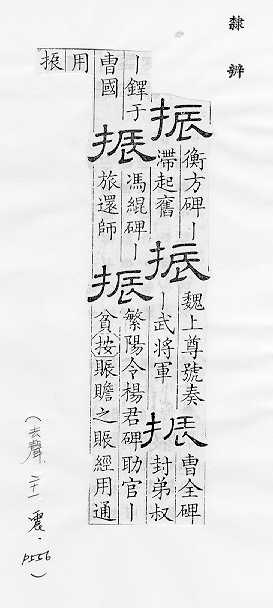 隸辨
振
衡方碑丨
滯起舊
振
魏上尊號奏
丨武將軍
振
曹全碑
封弟叔
丨鐸于
曹國
振
馮緄碑丨
旅還師
振
繁陽令楊君碑助官丨
貧按賑贍之賑經用通
用
振
(去聲 二十一 震·P556)